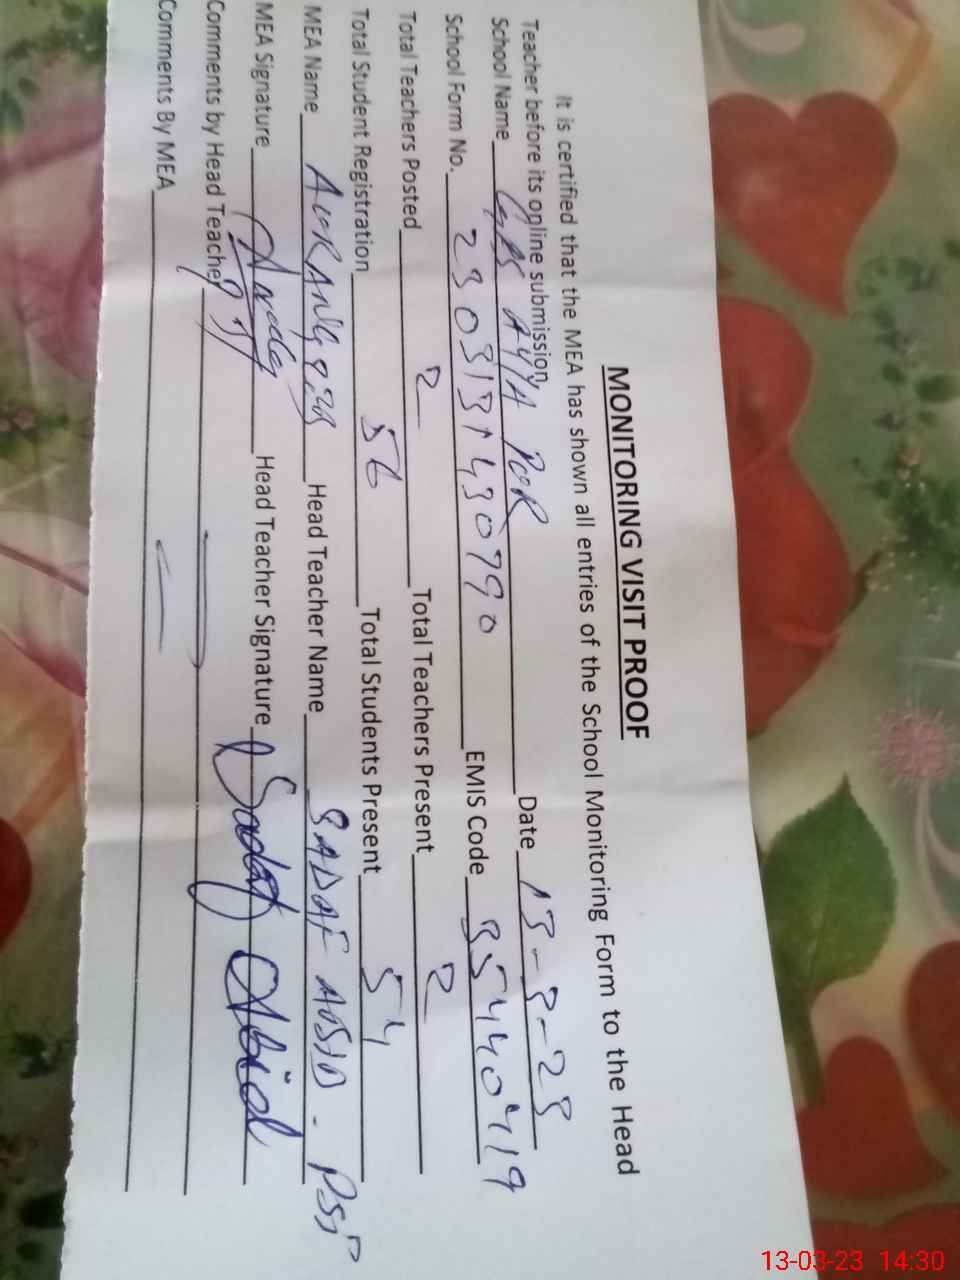 MONITORING VISIT PROOF
It is certified that the MEA has shown all entries of the School Monitoring Form to the Head
Teacher before its online submission.
School Name GPS AYYA POOR Date 13-3-23
School Form No. 2303131430790 EMIS Code 35440419
Total Teachers Posted 2 Total Teachers Present 2
Total Student Registration 56 Total Students Present 54
MEA Name AURANGZEB Head Teacher Name SADAF ABID - PST
MEA Signature Head Teacher Signature Sadaf Abid
Comments by Head Teacher
Comments By MEA
13-03-23 14:30